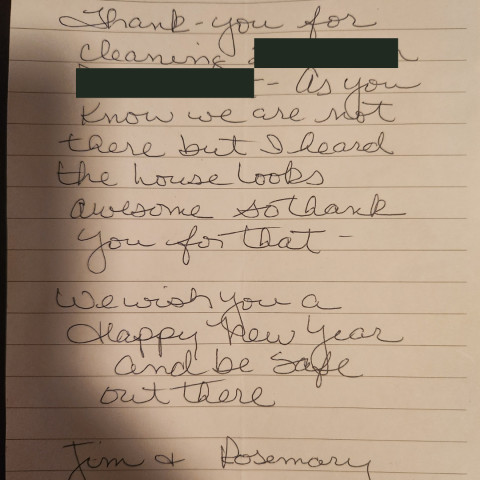 Thank-you for
cleaning
-- As you
know we are not
there but I heard
the house looks
awesome so thank
you for that -
We wish you a
Happy New Year
and be safe
out there
Jim & Rosemary